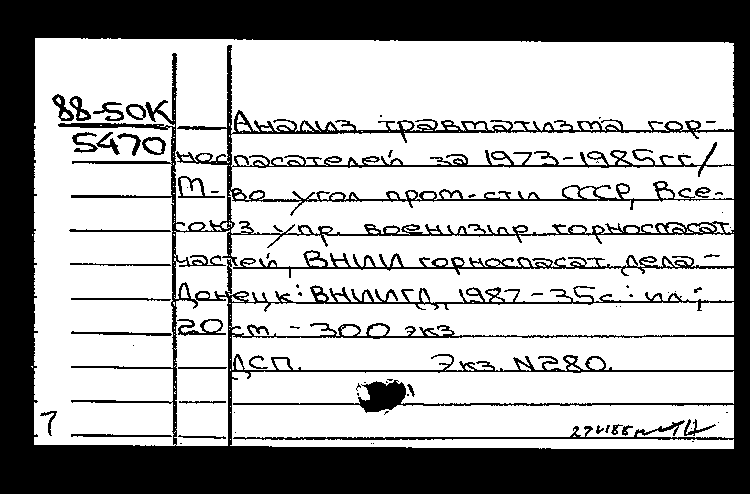 88-50К
5470
Анализ травматизма гор-
носпасателей за 1973-1985гг/
М-во угол пром-сти СССР, Все-
союз упр. военизир. горноспасат.
частей, ВНИИ горноспасат. дела -
Донецк: ВНИИГД, 1987 - 35с.: ил.;
20 см. - 300 экз
ДСП. Экз. N280.
7